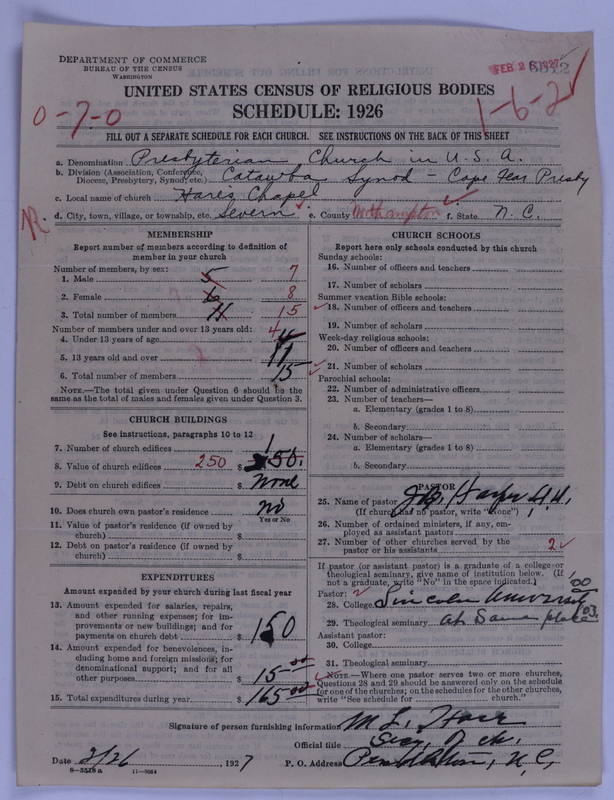 DEPARTMENT OF COMMERCE
BUREAU OF THE CENSUS
WASHINGTON
FEB 26 1927
UNITED STATES CENSUS OF RELIGIOUS BODIES
SCHEDULE: 1926
0-7-0
1-6-2
FILL OUT A SEPARATE SCHEDULE FOR EACH CHURCH. SEE INSTRUCTIONS ON THE BACK OF THIS SHEET
a. Denomination Presbyterian Church in U.S.A.
b. Division (Association, Conference, Diocese, Presbytery, Synod, etc.) Catawba Synod - Cape Fear Presby
c. Local name of church Hares Chapel
d. City, town, village, or township, etc. Severn e. County Northampton f. State N.C.
MEMBERSHIP
Report number of members according to definition of
member in your church
Number of members, by sex:
1. Male 5 7
2. Female 6 8
3. Total number of members 11 15
Number of members under and over 13 years old:
4. Under 13 years of age 4
5. 13 years old and over 11
6. Total number of members 15
NOTE.—The total given under Question 6 should be the
same as the total of males and females given under Question 3.
CHURCH BUILDINGS
See instructions, paragraphs 10 to 12
7. Number of church edifices 1
8. Value of church edifices 250 $ 50.
9. Debt on church edifices $ None
10. Does church own pastor's residence no
Yes or No
11. Value of pastor's residence (if owned by
church) $
12. Debt on pastor's residence (if owned by
church) $
EXPENDITURES
Amount expended by your church during last fiscal year
13. Amount expended for salaries, repairs,
and other running expenses; for im-
provements or new buildings; and for
payments on church debt $ 150
14. Amount expended for benevolences, in-
cluding home and foreign missions; for
denominational support; and for all
other purposes $ 15.00
15. Total expenditures during year $ 165.00
CHURCH SCHOOLS
Report here only schools conducted by this church
Sunday schools:
16. Number of officers and teachers
17. Number of scholars
Summer vacation Bible schools:
18. Number of officers and teachers
19. Number of scholars
Week-day religious schools:
20. Number of officers and teachers
21. Number of scholars
Parochial schools:
22. Number of administrative officers
23. Number of teachers—
a. Elementary (grades 1 to 8)
b. Secondary
24. Number of scholars—
a. Elementary (grades 1 to 8)
b. Secondary
PASTOR
25. Name of pastor
(If church has no pastor, write "None")
26. Number of ordained ministers, if any, em-
ployed as assistant pastors
27. Number of other churches served by the
pastor or his assistants 2
If pastor (or assistant pastor) is a graduate of a college or
theological seminary, give name of institution below. (If
not a graduate, write "No" in the space indicated.)
Pastor:
28. College Lincoln University '00
29. Theological seminary at Same place '03
Assistant pastor:
30. College
31. Theological seminary
NOTE.—Where one pastor serves two or more churches,
Questions 28 and 29 should be answered only on the schedule
for one of the churches; on the schedules for the other churches,
write "See schedule for church."
Signature of person furnishing information
Official title
Date 2/26 1927 P. O. Address Pendleton, N.C.
8-5518a 11-9064